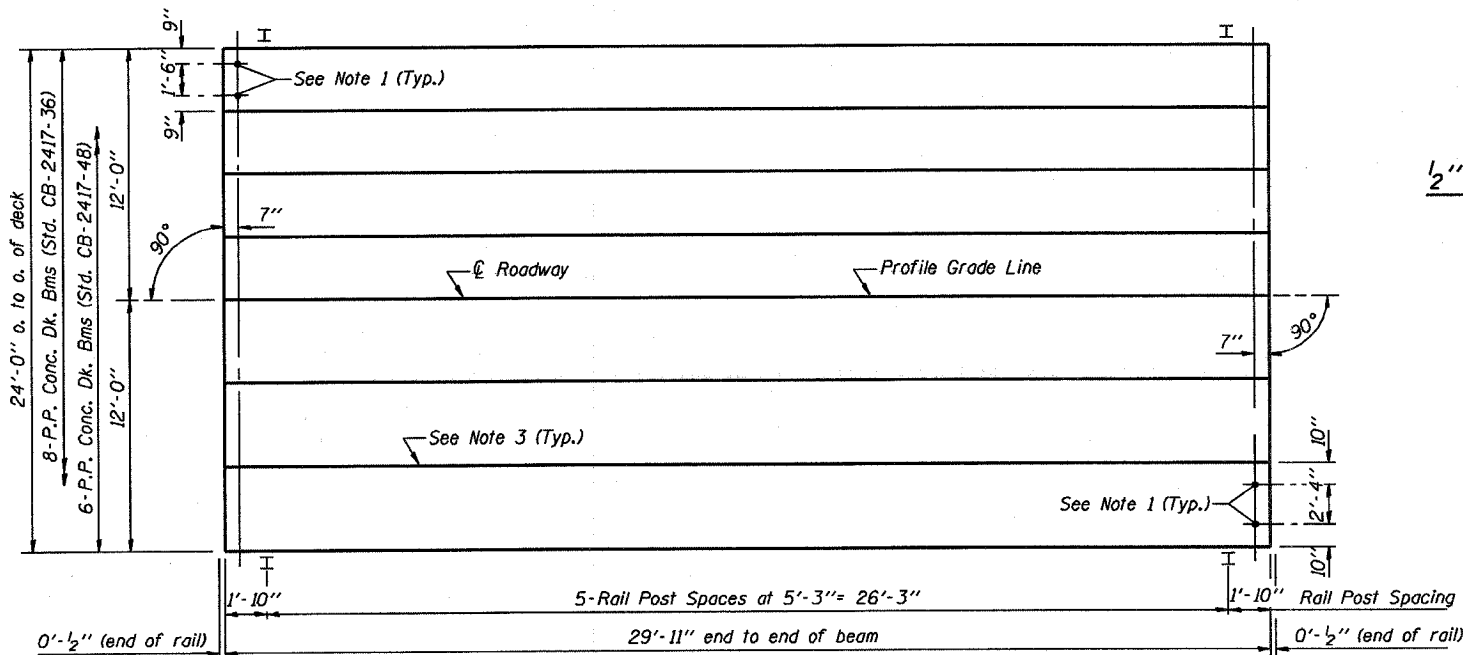 9"
1'-6"
9"
See Note 1 (Typ.)
24'-0" o. to o. of deck
8-P.P. Conc. Dk. Bms (Std. CB-2417-36)
6-P.P. Conc. Dk. Bms (Std. CB-2417-48)
12'-0"
12'-0"
90°
7"
℄ Roadway
Profile Grade Line
1/2"
7"
90°
See Note 3 (Typ.)
See Note 1 (Typ.)
10"
2'-4"
10"
1'-10"
5-Rail Post Spaces at 5'-3"= 26'-3"
1'-10"
Rail Post Spacing
0'-1/2" (end of rail)
29'-11" end to end of beam
0'-1/2" (end of rail)